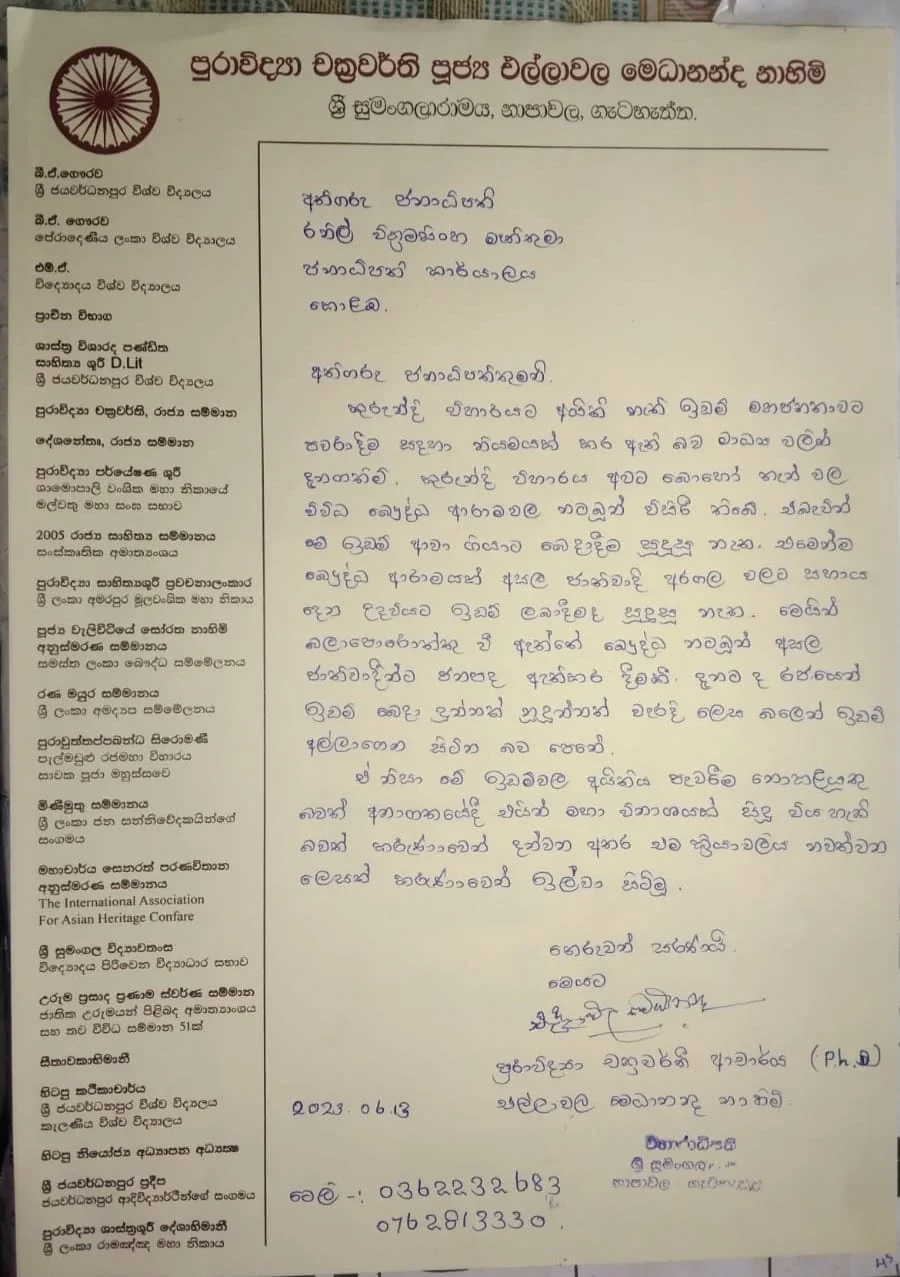 පුරාවිද්‍යා චක්‍රවර්ති පූජ්‍ය එල්ලාවල මෙධානන්ද නාහිමි
ශ්‍රී සුමංගලාරාමය, නාපාවල, ගැටහැත්ත.
බී.ඒ.ගෞරව
ශ්‍රී ජයවර්ධනපුර විශ්ව විද්‍යාලය
බී.ඒ. ගෞරව
පේරාදෙණිය ලංකා විශ්ව විද්‍යාලය
එම්.ඒ.
විද්‍යොදය විශ්ව විද්‍යාලය
ප්‍රාචීන විභාග
ශාස්ත්‍ර විශාරද පණ්ඩිත
සාහිත්‍ය ශූරී D.Lit
ශ්‍රී ජයවර්ධනපුර විශ්ව විද්‍යාලය
පුරාවිද්‍යා චක්‍රවර්ති, රාජ්‍ය සම්මාන
දේශනේත්‍රෘ, රාජ්‍ය සම්මාන
පුරාවිද්‍යා පර්යේෂණ ශූරී
ශාමොපාලි වංශික මහා නිකායේ
මල්වතු මහා සංඝ සභාව
2005 රාජ්‍ය සාහිත්‍ය සම්මානය
සංස්කෘතික අමාත්‍යංශය
පුරාවිද්‍යා සාහිත්‍යශූරී ප්‍රවචනාලංකාර
ශ්‍රී ලංකා අමරපුර මූලවංශික මහා නිකාය
පූජ්‍ය වැලිවිටියේ සෝරත නාහිමි
අනුස්මරණ සම්මානය
සමස්ත ලංකා බෞද්ධ සම්මේලනය
රණ මයුර සම්මානය
ශ්‍රී ලංකා අමද්‍යප සම්මේලනය
පුරාවුත්තප්පබන්ධ සිරොමණී
පැල්මඩුළු රජමහා විහාරය
සාවක පූජා මහුස්සවෙ
මිණිමුතු සම්මානය
ශ්‍රී ලංකා ජන සන්නිවේදකයින්ගේ
සංගමය
මහාචාර්ය සෙනරත් පරණවිතාන
අනුස්මරණ සම්මානය
The International Association
For Asian Heritage Confare
ශ්‍රී සුමංගල විද්‍යාවතංස
විද්‍යොදය පිරිවෙන විද්‍යාධාර සභාව
උරුම ප්‍රසාද ප්‍රණාම ස්වර්ණ සම්මාන
ජාතික උරුමයන් පිළිබඳ අමාත්‍යාංශය
සහ තව විවිධ සම්මාන 51ක්
සීතාවකාභිමානී
හිටපු කථිකාචාර්ය
ශ්‍රී ජයවර්ධනපුර විශ්ව විද්‍යාලය
කැලණිය විශ්ව විද්‍යාලය
හිටපු නියෝජ්‍ය අධ්‍යාපන අධ්‍යක්ෂ
ශ්‍රී ජයවර්ධනපුර ප්‍රදීප
ජයවර්ධනපුර ආදිවිද්‍යාර්ථීන්ගේ සංගමය
පුරාවිද්‍යා ශාස්ත්‍රශූරී දේශාභිමානී
ශ්‍රී ලංකා රාමඤ්ඤ මහා නිකාය
අතිගරු ජනාධිපති
රනිල් වික්‍රමසිංහ මැතිතුමා
ජනාධිපති කාර්යාලය
කොළඹ.
අතිගරු ජනාධිපතිතුමනි.
කුරුන්දි විහාරයට අයිති නැති ඉඩම් මහජනතාවට
පවරාදීම සඳහා නියමයක් කර ඇති බව මාධ්‍ය වලින්
දැනගතිමි. කුරුන්දි විහාරය අවට බොහෝ තැන් වල
විවිධ බෞද්ධ ආරාමවල නටඹුන් විසිරී තිබේ. එබැවින්
මේ ඉඩම් ආවා ගියාට බෙදාදීම සුදුසු නැත. එමෙන්ම
බෞද්ධ ආරාමයක් අසල ජාතිවාදි අරගල වලට සහාය
දෙන උදවියට ඉඩම් ලබාදීමද සුදුසු නැත. මෙයින්
බලාපොරොත්තු වී ඇත්තේ බෞද්ධ නටඹුන් අසල
ජාතිවාදීන්ට ජනපද ඇතිකර දීමකි. දැනට ද රජයෙන්
ඉඩම් බෙදා දුන්නත් නුදුන්නත් වැරදි ලෙස බලෙන් ඉඩම්
අල්ලාගෙන සිටින බව පෙනේ.
ඒ නිසා මේ ඉඩම්වල අයිතිය පැවරීම නොකළයුතු
බවත් අනාගතයේදී එයින් මහා විනාශයක් සිදු විය හැකි
බවත් කරුණාවෙන් දන්වන අතර එම ක්‍රියාවලිය නවත්වන
ලෙසත් කරුණාවෙන් ඉල්වා සිටිමු.
තෙරුවන් සරණයි.
මෙයට
පුරාවිද්‍යා චක්‍රවර්ති ආචාර්ය (P.h.D)
2023.06.13
එල්ලාවල මෙධානන්ද නාහිමි.
විහාරාධිපති
ශ්‍රී සුමංගලා
නාපාවල
ටෙලි -: 0362232683
0762813330.